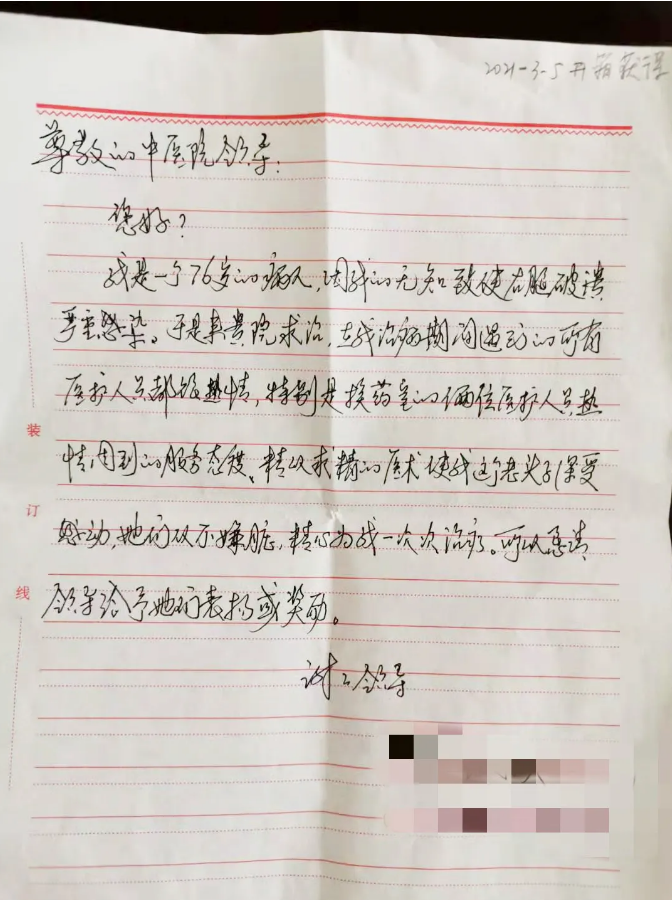 2021-3-5开箱获得
尊敬的中医院领导:
您好?
我是一个76岁的病人,因我的无知致使右腿破溃
严重感染。于是来贵院求治,在我治病期间遇到的所有
医护人员都很热情,特别是换药室的俩位医护人员热
情周到的服务态度、精以求精的医术使我这个老头子深受
感动,她们从不嫌脏,精心为我一次次治疗。所以恳请
领导给予她们表扬或奖励。
谢谢领导
装
订
线